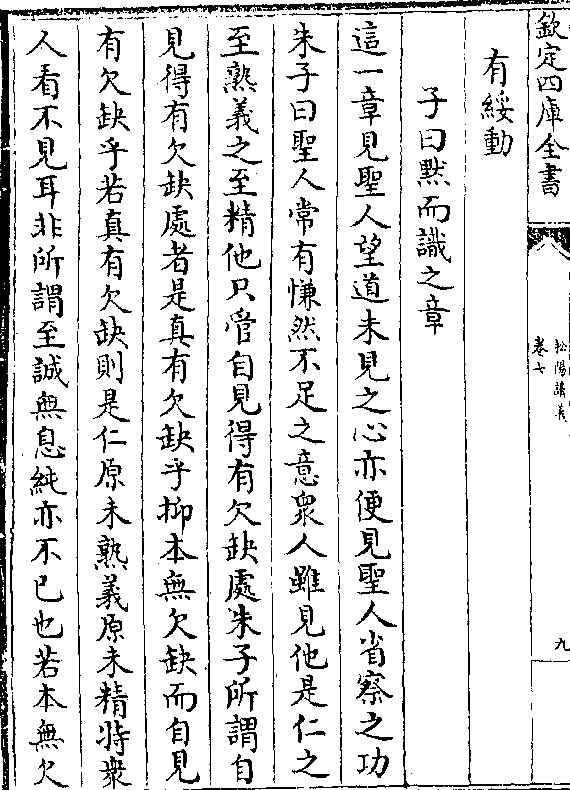 欽定四庫全書
松陽講義
卷七
九
有綏動
子曰黙而識之章
這一章見聖人望道未見之心亦便見聖人省察之功
朱子曰聖人常有慊然不足之意衆人雖見他是仁之
至熟義之至精他只管自見得有欠缺處朱子所謂自
見得有欠缺處者是真有欠缺乎抑本無欠缺而自見
有欠缺乎若真有欠缺則是仁原未熟義原未精特衆
人看不見耳非所謂至誠無息純亦不已也若本無欠